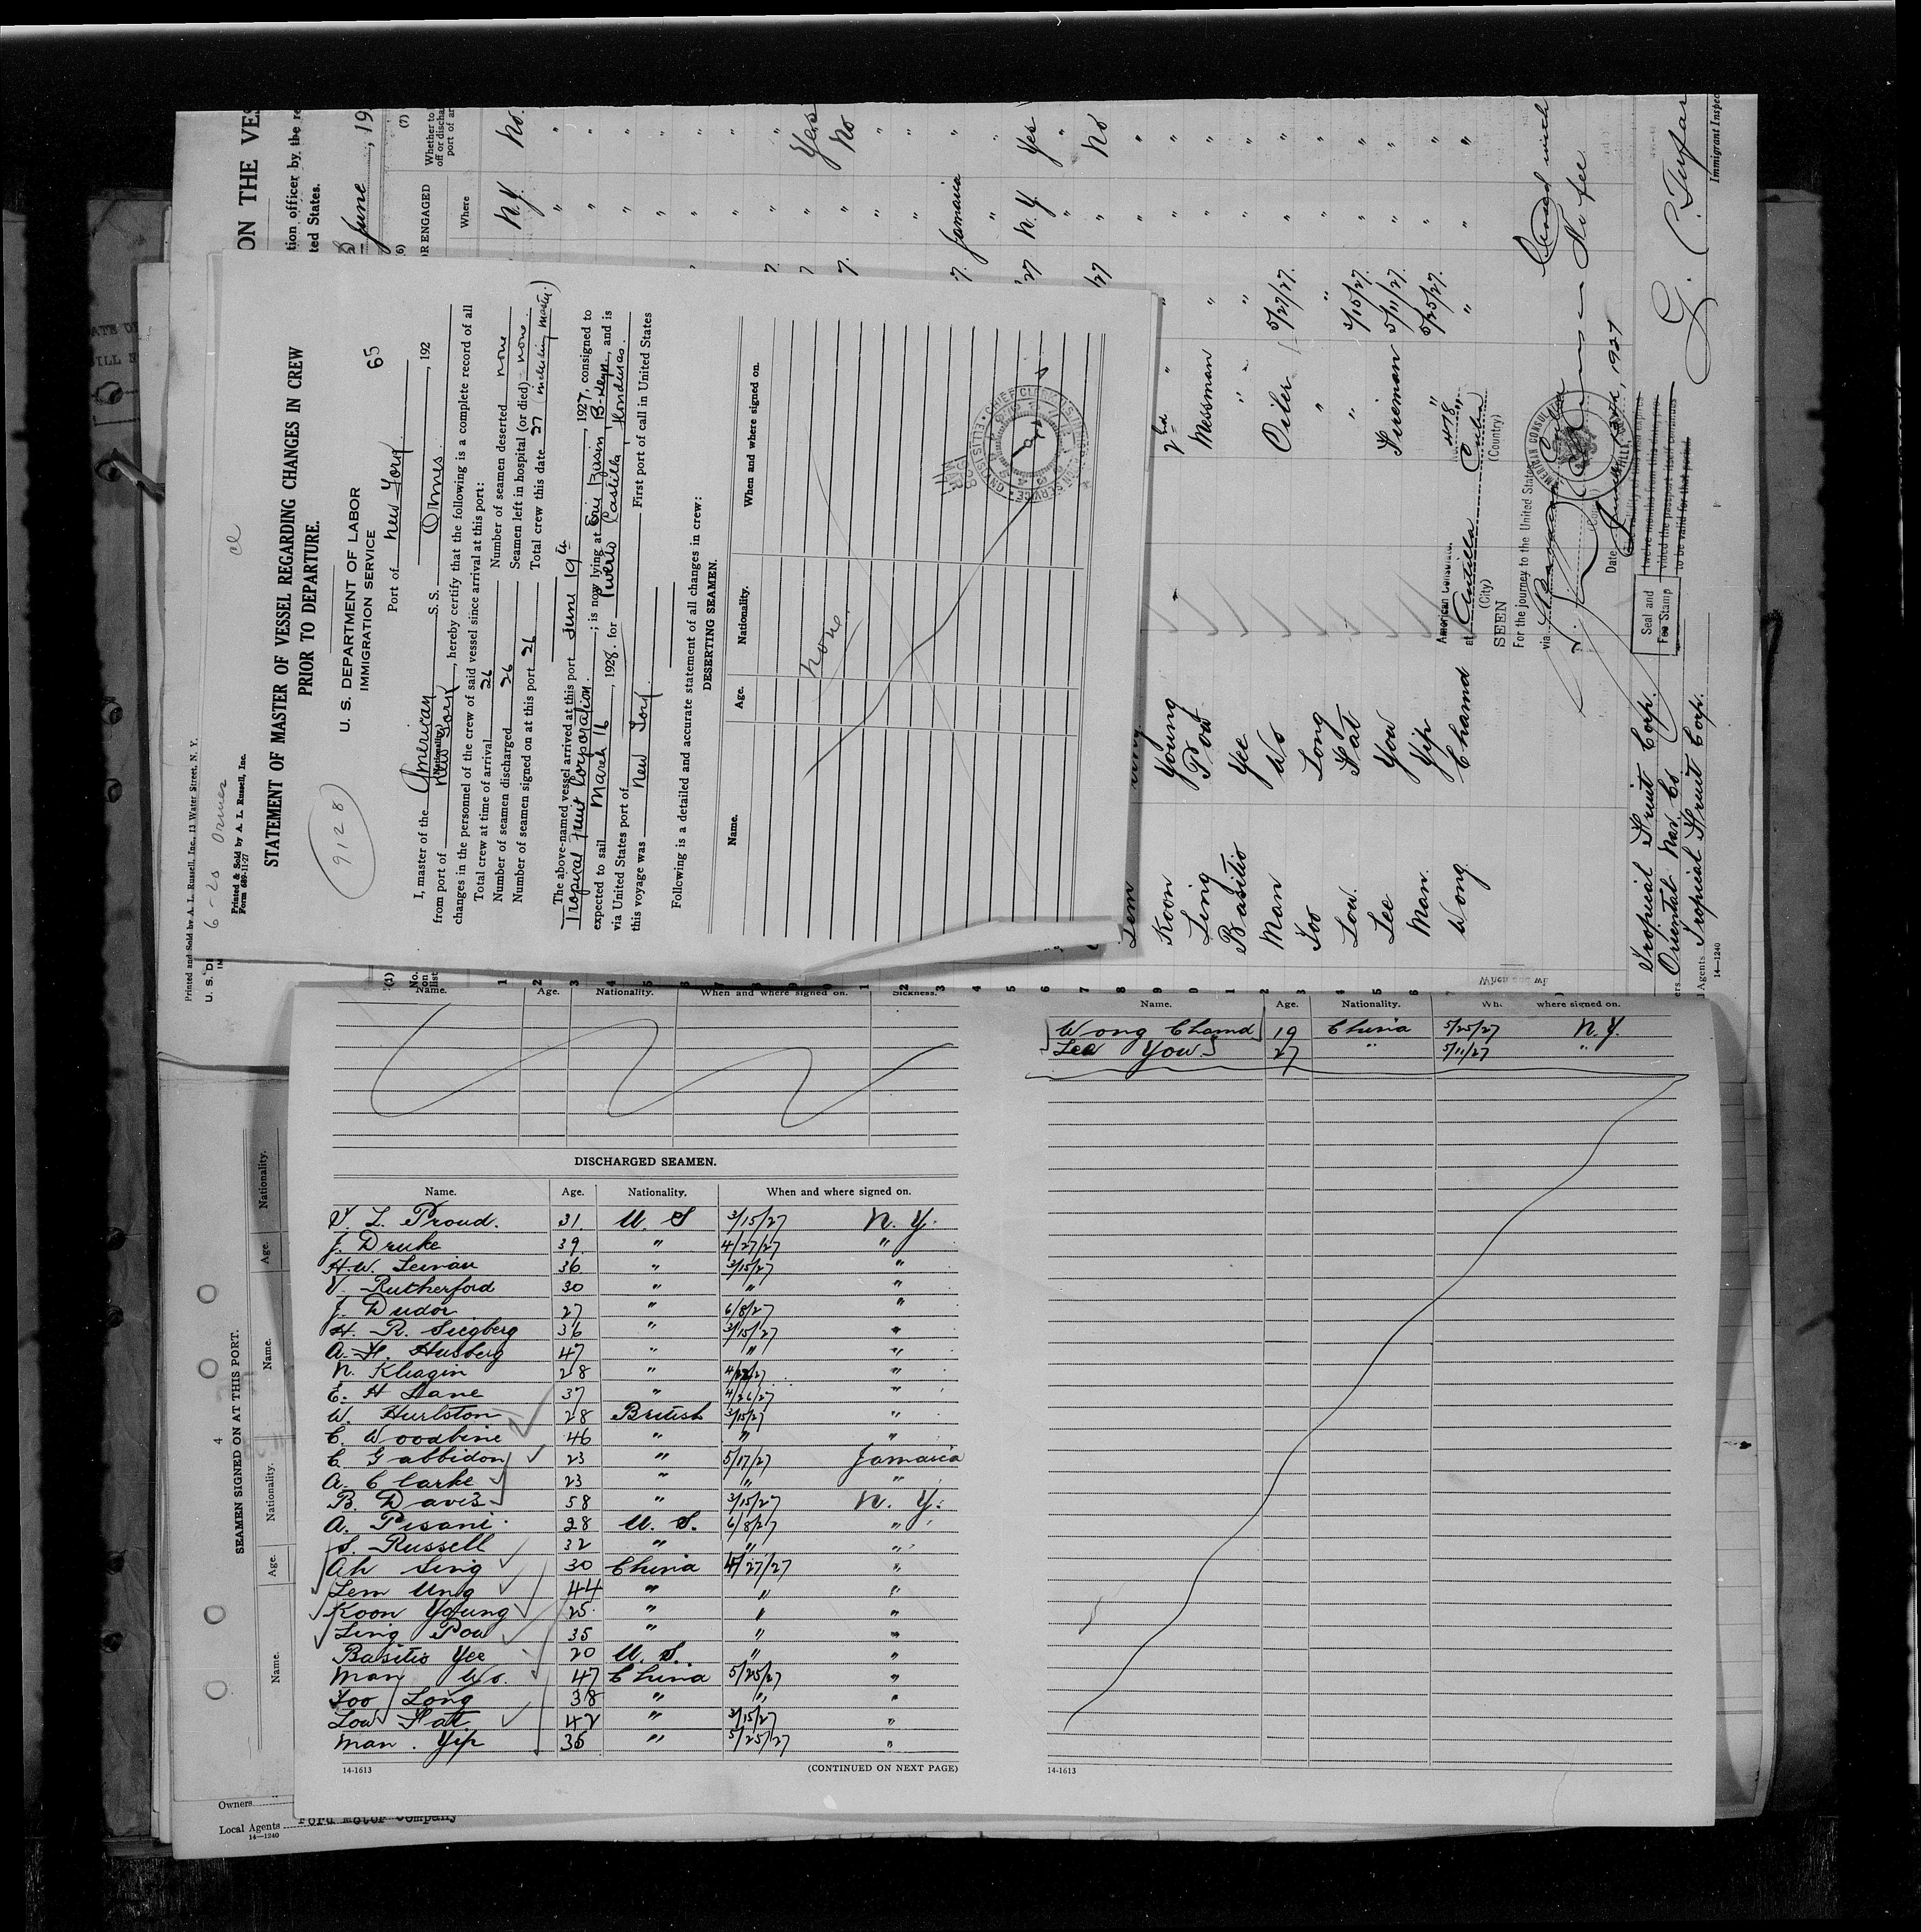 Printed and Sold by A. L. Russell, Inc., 13 Water Street, N. Y.
6 - 20 Ormes
Printed & Sold by A. L. Russell, Inc.
Form 689-11-27
STATEMENT OF MASTER OF VESSEL REGARDING CHANGES IN CREW
PRIOR TO DEPARTURE.
9128
U. S. DEPARTMENT OF LABOR
IMMIGRATION SERVICE
65
Port of New York
, 192
I, master of the American S. S. Ormes
Nationality.
from port of New York, hereby certify that the following is a complete record of all
changes in the personnel of the crew of said vessel since arrival at this port:
Total crew at time of arrival 26 Number of seamen deserted none
Number of seamen discharged 26 Seamen left in hospital (or died) none
Number of seamen signed on at this port 26 Total crew this date 27 (including master.)
The above-named vessel arrived at this port June 19th, 1927, consigned to
Tropical Fruit Corporation.; is now lying at Erie Basin, B-klyn, and is
expected to sail March 16, 1928. for Puerto Castilla, Honduras.
via United States port of First port of call in United States
this voyage was New York.
Following is a detailed and accurate statement of all changes in crew:
DESERTING SEAMEN.
Name. Age. Nationality. When and where signed on.
None.
ON THE VES
tion officer by the re
ted States.
June, 19
(6) (7)
OR ENGAGED
Where
Whether to
off or discha
port of ar
N.Y. No.
" "
Yes
No
Jamaica "
N.Y. Yes
" No
Lem
Koon Young 2nd "
Ling Pow Messman "
Basitio Yee " "
Man Wo Oiler 5/27/27.
Foo Long " "
Low. Fat " 3/15/27.
Lee You Fireman 5/11/27.
Man. Yip " 5/25/27.
Wong Chamd "
American Consulate.
at Antilla Cuba
(City) (Country)
SEEN
For the journey to the United States
via
Date , 1927
AMERICAN CONSUL
Seal and
Fee Stamp
No fee
Tropical Fruit Corp.
Oriental Nav Co
Agents Tropical Fruit Corp.
14—1240
Immigrant Inspec
Name. Age. Nationality. When and where signed on. Sickness.
DISCHARGED SEAMEN.
Name. Age. Nationality. When and where signed on.
V. L. Proud. 31. U. S 3/15/27 N. Y.
J. Druke 39. " 4/27/27 "
H.W. Leinau 36 " 3/15/27 "
V. Rutherford 30 " " "
J. Dudor 27 " 6/8/27 "
H. R. Siegberg 36 " 3/15/27 "
A. H. Husberg 47 " " "
N. Kleagin 28 " "
E. H Lane 37 " 4/26/27 "
W. Hurlston 28 British 3/15/27 "
C. Woodbine 46 " " "
C. Gabbidon 23 " 5/17/27 Jamaica
A. Clarke 23 " " "
B. Davis 58 " 3/15/27 N. Y.
A. Pisani. 28 U. S. 6/8/27 "
S. Russell 32 " " "
Ah Sing 30 China 4/27/27 "
Lem Ung 44 " " "
Koon Young 25. " " "
Ling Pow 35 " " "
Basitio Yee 20 U. S. " "
Man Wo. 47 China 5/25/27 "
Foo Long 38 " " "
Low Fatt 42 " 3/15/27 "
Man. Yip 36 " 5/25/27 "
14-1613 (CONTINUED ON NEXT PAGE)
Name. Age. Nationality. where signed on.
Wong Chamd 19 China 5/25/27 N.Y.
Lee You 27 " 5/11/27 "
14-1613
4
SEAMEN SIGNED ON AT THIS PORT.
Name. Age. Nationality. Name. Age. Nationality.
Owners
Local Agents Ford Motor Company
14—1240